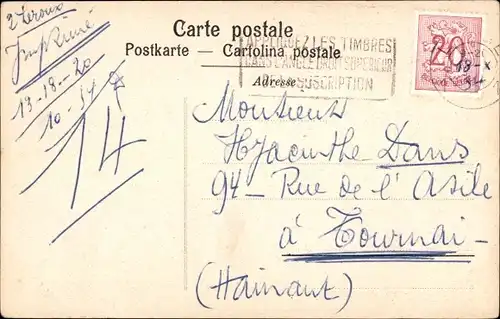 Carte postale
Postkarte – Cartolina postale
Adresse
APPLIQUEZ LES TIMBRES
DANS L'ANGLE DROIT SUPERIEUR
SUSCRIPTION
20
18-X
Imprimé
13-18-20
14
Monsieur
Hyacinthe Dans
94 – Rue de l'Asile
à Tournai –
(Hainaut)